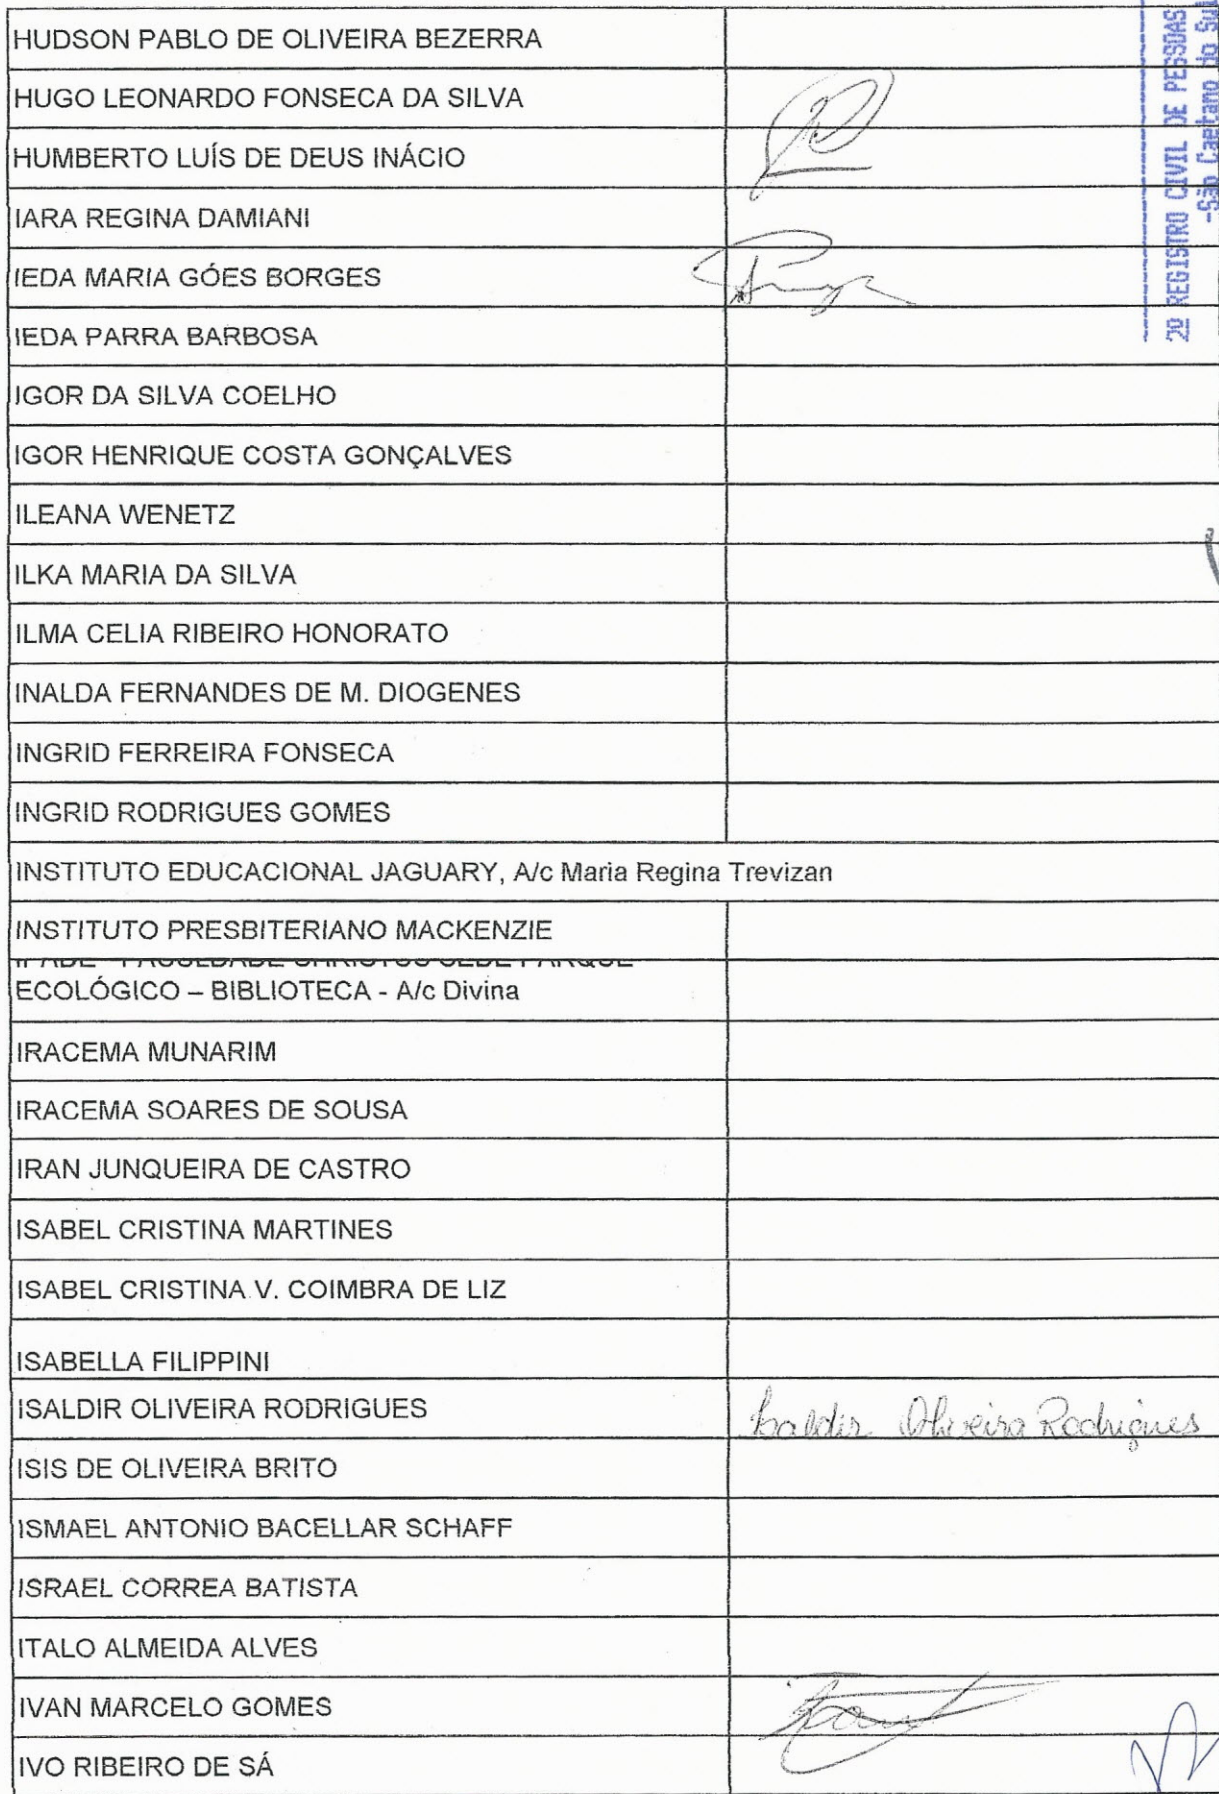 HUDSON PABLO DE OLIVEIRA BEZERRA
HUGO LEONARDO FONSECA DA SILVA
HUMBERTO LUÍS DE DEUS INÁCIO
IARA REGINA DAMIANI
IEDA MARIA GÓES BORGES
IEDA PARRA BARBOSA
IGOR DA SILVA COELHO
IGOR HENRIQUE COSTA GONÇALVES
ILEANA WENETZ
ILKA MARIA DA SILVA
ILMA CELIA RIBEIRO HONORATO
INALDA FERNANDES DE M. DIOGENES
INGRID FERREIRA FONSECA
INGRID RODRIGUES GOMES
INSTITUTO EDUCACIONAL JAGUARY, A/c Maria Regina Trevizan
INSTITUTO PRESBITERIANO MACKENZIE
ECOLÓGICO – BIBLIOTECA - A/c Divina
IRACEMA MUNARIM
IRACEMA SOARES DE SOUSA
IRAN JUNQUEIRA DE CASTRO
ISABEL CRISTINA MARTINES
ISABEL CRISTINA V. COIMBRA DE LIZ
ISABELLA FILIPPINI
ISALDIR OLIVEIRA RODRIGUES Isaldir Oliveira Rodrigues
ISIS DE OLIVEIRA BRITO
ISMAEL ANTONIO BACELLAR SCHAFF
ISRAEL CORREA BATISTA
ITALO ALMEIDA ALVES
IVAN MARCELO GOMES
IVO RIBEIRO DE SÁ
2º REGISTRO CIVIL DE PESSOAS
-São Caetano do Sul